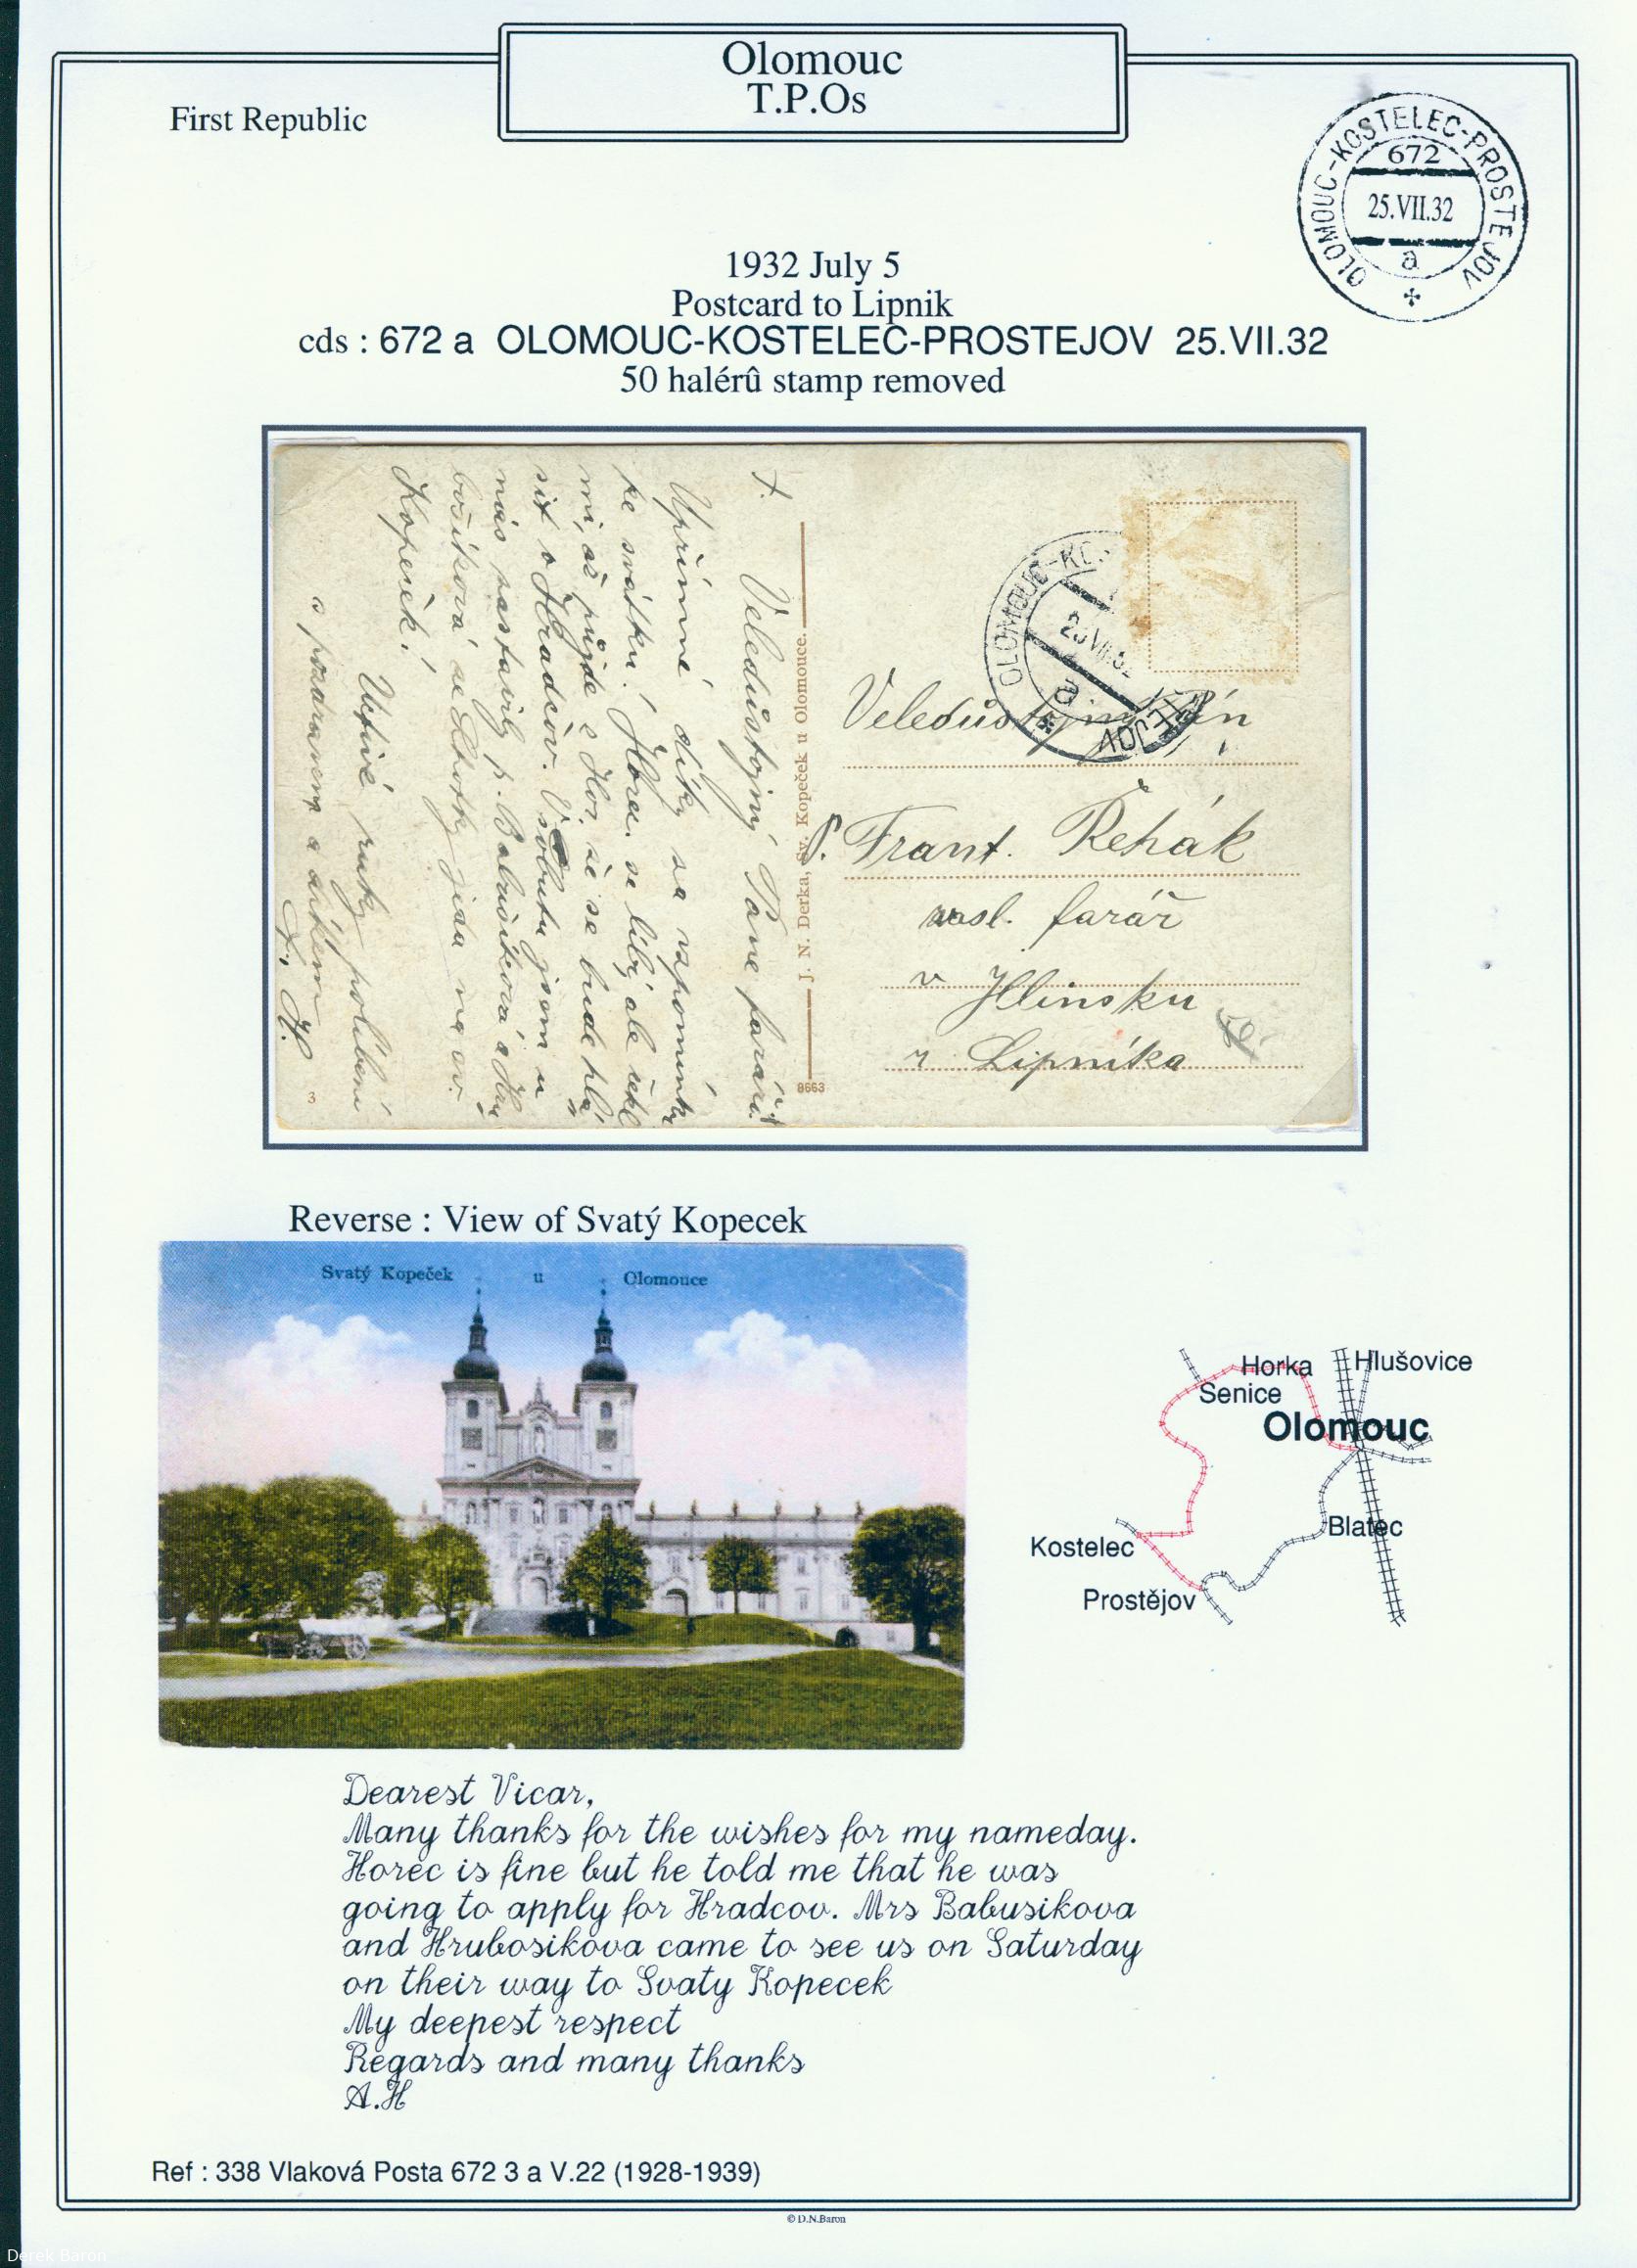 Olomouc
T.P.Os
First Republic
OLOMOUC-KOSTELEC-PROSTEJOV
672
25.VII.32
a
1932 July 5
Postcard to Lipnik
cds : 672 a OLOMOUC-KOSTELEC-PROSTEJOV 25.VII.32
50 halérû stamp removed
OLOMOUC-KOS
VII.3
a
EJOV
Veledůstojný Pán
P. Frant. Řehák
zasl. farář
v Hlinsku
z. Lipníka
J. N. Derka, Sv. Kopeček u Olomouce.
8663
†.
Veledůstojný Pane faráři!
Upřímné díky za vzpomínky
ke svátku. Horec. se líbí, ale řekl
mi, až půjde z Hor. že se bude hlá-
sit o Hradčov. V sobotu jsem u
nás zastavily p. Babušíková a Hru-
bošíková ze Lhotky jedou na sv.
Kopeček!
Uctivé ruky políbení
s pozdravem a díkem
A. H.
3
Reverse : View of Svatý Kopecek
Svatý Kopeček u Olomouce
Horka
Hlušovice
Senice
Olomouc
Blatec
Kostelec
Prostějov
Dearest Vicar,
Many thanks for the wishes for my nameday.
Horec is fine but he told me that he was
going to apply for Hradcov. Mrs Babusikova
and Hrubosikova came to see us on Saturday
on their way to Svaty Kopecek
My deepest respect
Regards and many thanks
A.H
Ref : 338 Vlaková Posta 672 3 a V.22 (1928-1939)
© D.N.Baron
Derek Baron